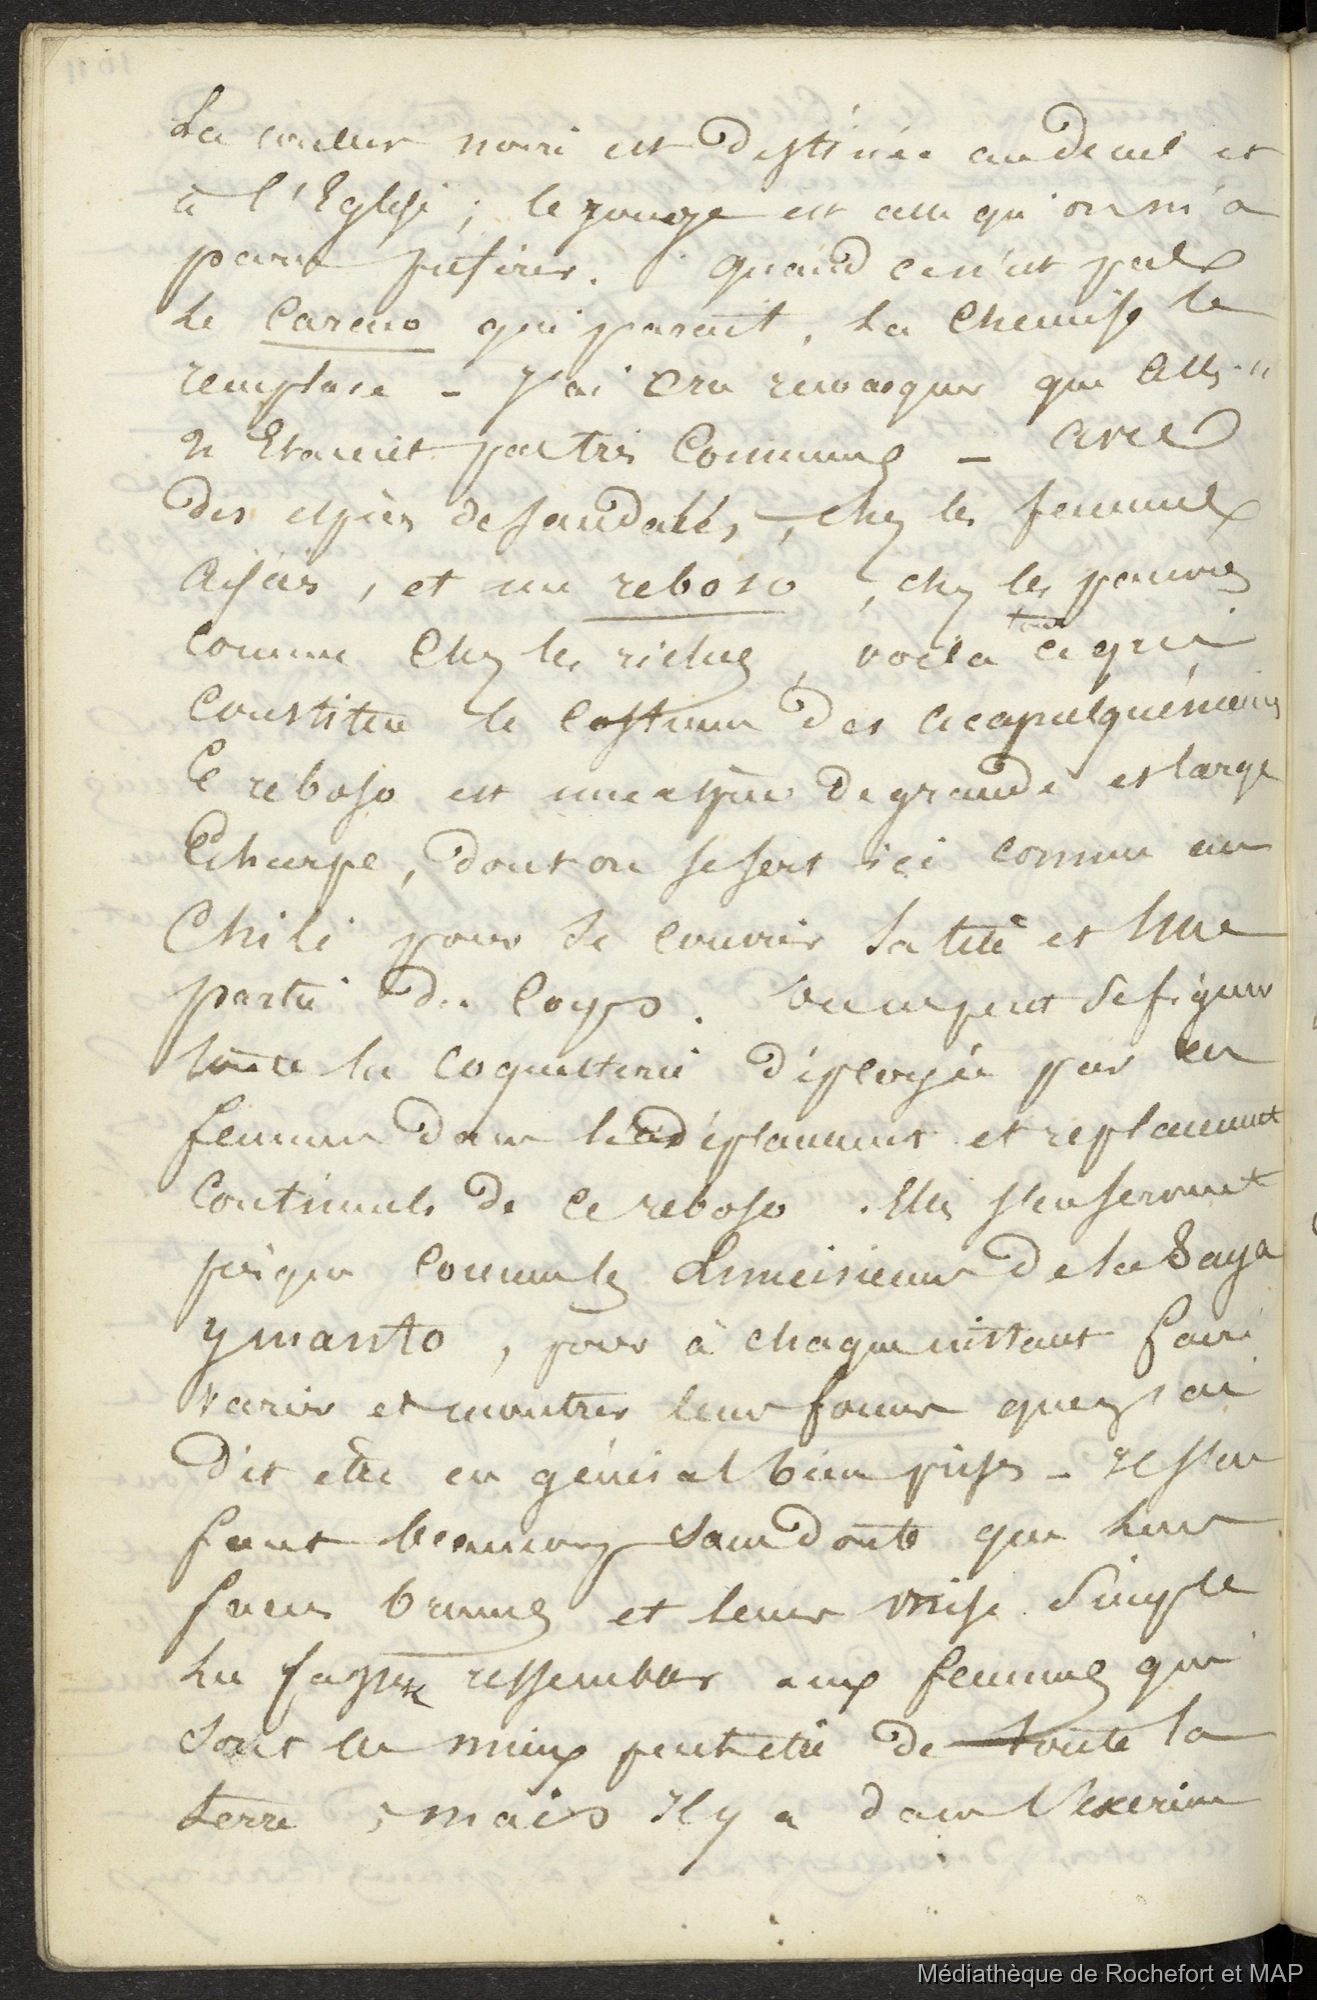 La couleur noire est destinée au deuil et
à l'Eglise ; le rouge est celle qu'on m'a
paru préférer. Quand ce n'est pas
le Careno qui parait, la Chemise le
remplace - J'ai cru remarquer que Elles
n'Etaient pas très Communes - avec
des espèces de sandales, chez les femmes
aisées, et un reboso, chez les pauvres
comme chez les riches, voila tout ce qui
constitue le costume des acapulquéniennes
Le reboso est une espèce de grande et large
Echarpe, dont on se sert ici comme au
Chili pour se couvrir la tête et une
partie du Corps. On ne peut se figurer
toute la coquetterie déployée par ces
femmes dans les déplacemens et replacement
Continuels de ce reboso. Elles s'en servent
presque comme les Liméniennes de la Saya
y manto, pour à chaque instant faire
varier et montrer leurs formes que j'ai
dit être en général bien prises - Il s'en
faut beaucoup sans doute que leurs
faces brunes et leur mise simple
les fassent ressembler aux femmes qui
sont le mieux peut être de toute la
terre ; mais Il y a dans l'Exterieur
Médiathèque de Rochefort et MAP